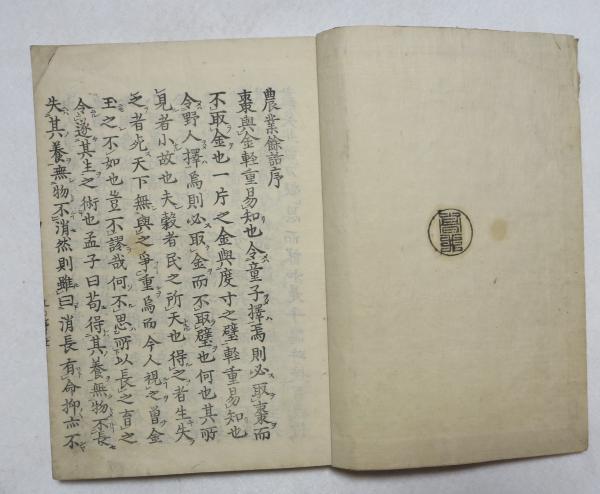 農業餘話序
棗與金輕重易知也令童子擇焉則必取棗而
不取金也一片之金與度寸之璧輕重易知也
令野人擇焉則必取金而不取璧也何也其所
見者小故也夫穀者民之所天也得之者生失
之者死天下無與之爭重焉而今人視之曾金
玉之不如也豈不謬哉何不思所以長之育之
令遂其生之術也孟子曰苟得其養無物不長
失其養無物不消然則雖曰消長有命抑亦不